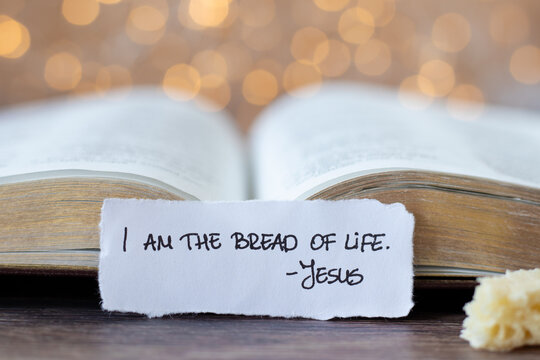 I AM THE BREAD OF LIFE.
-JESUS